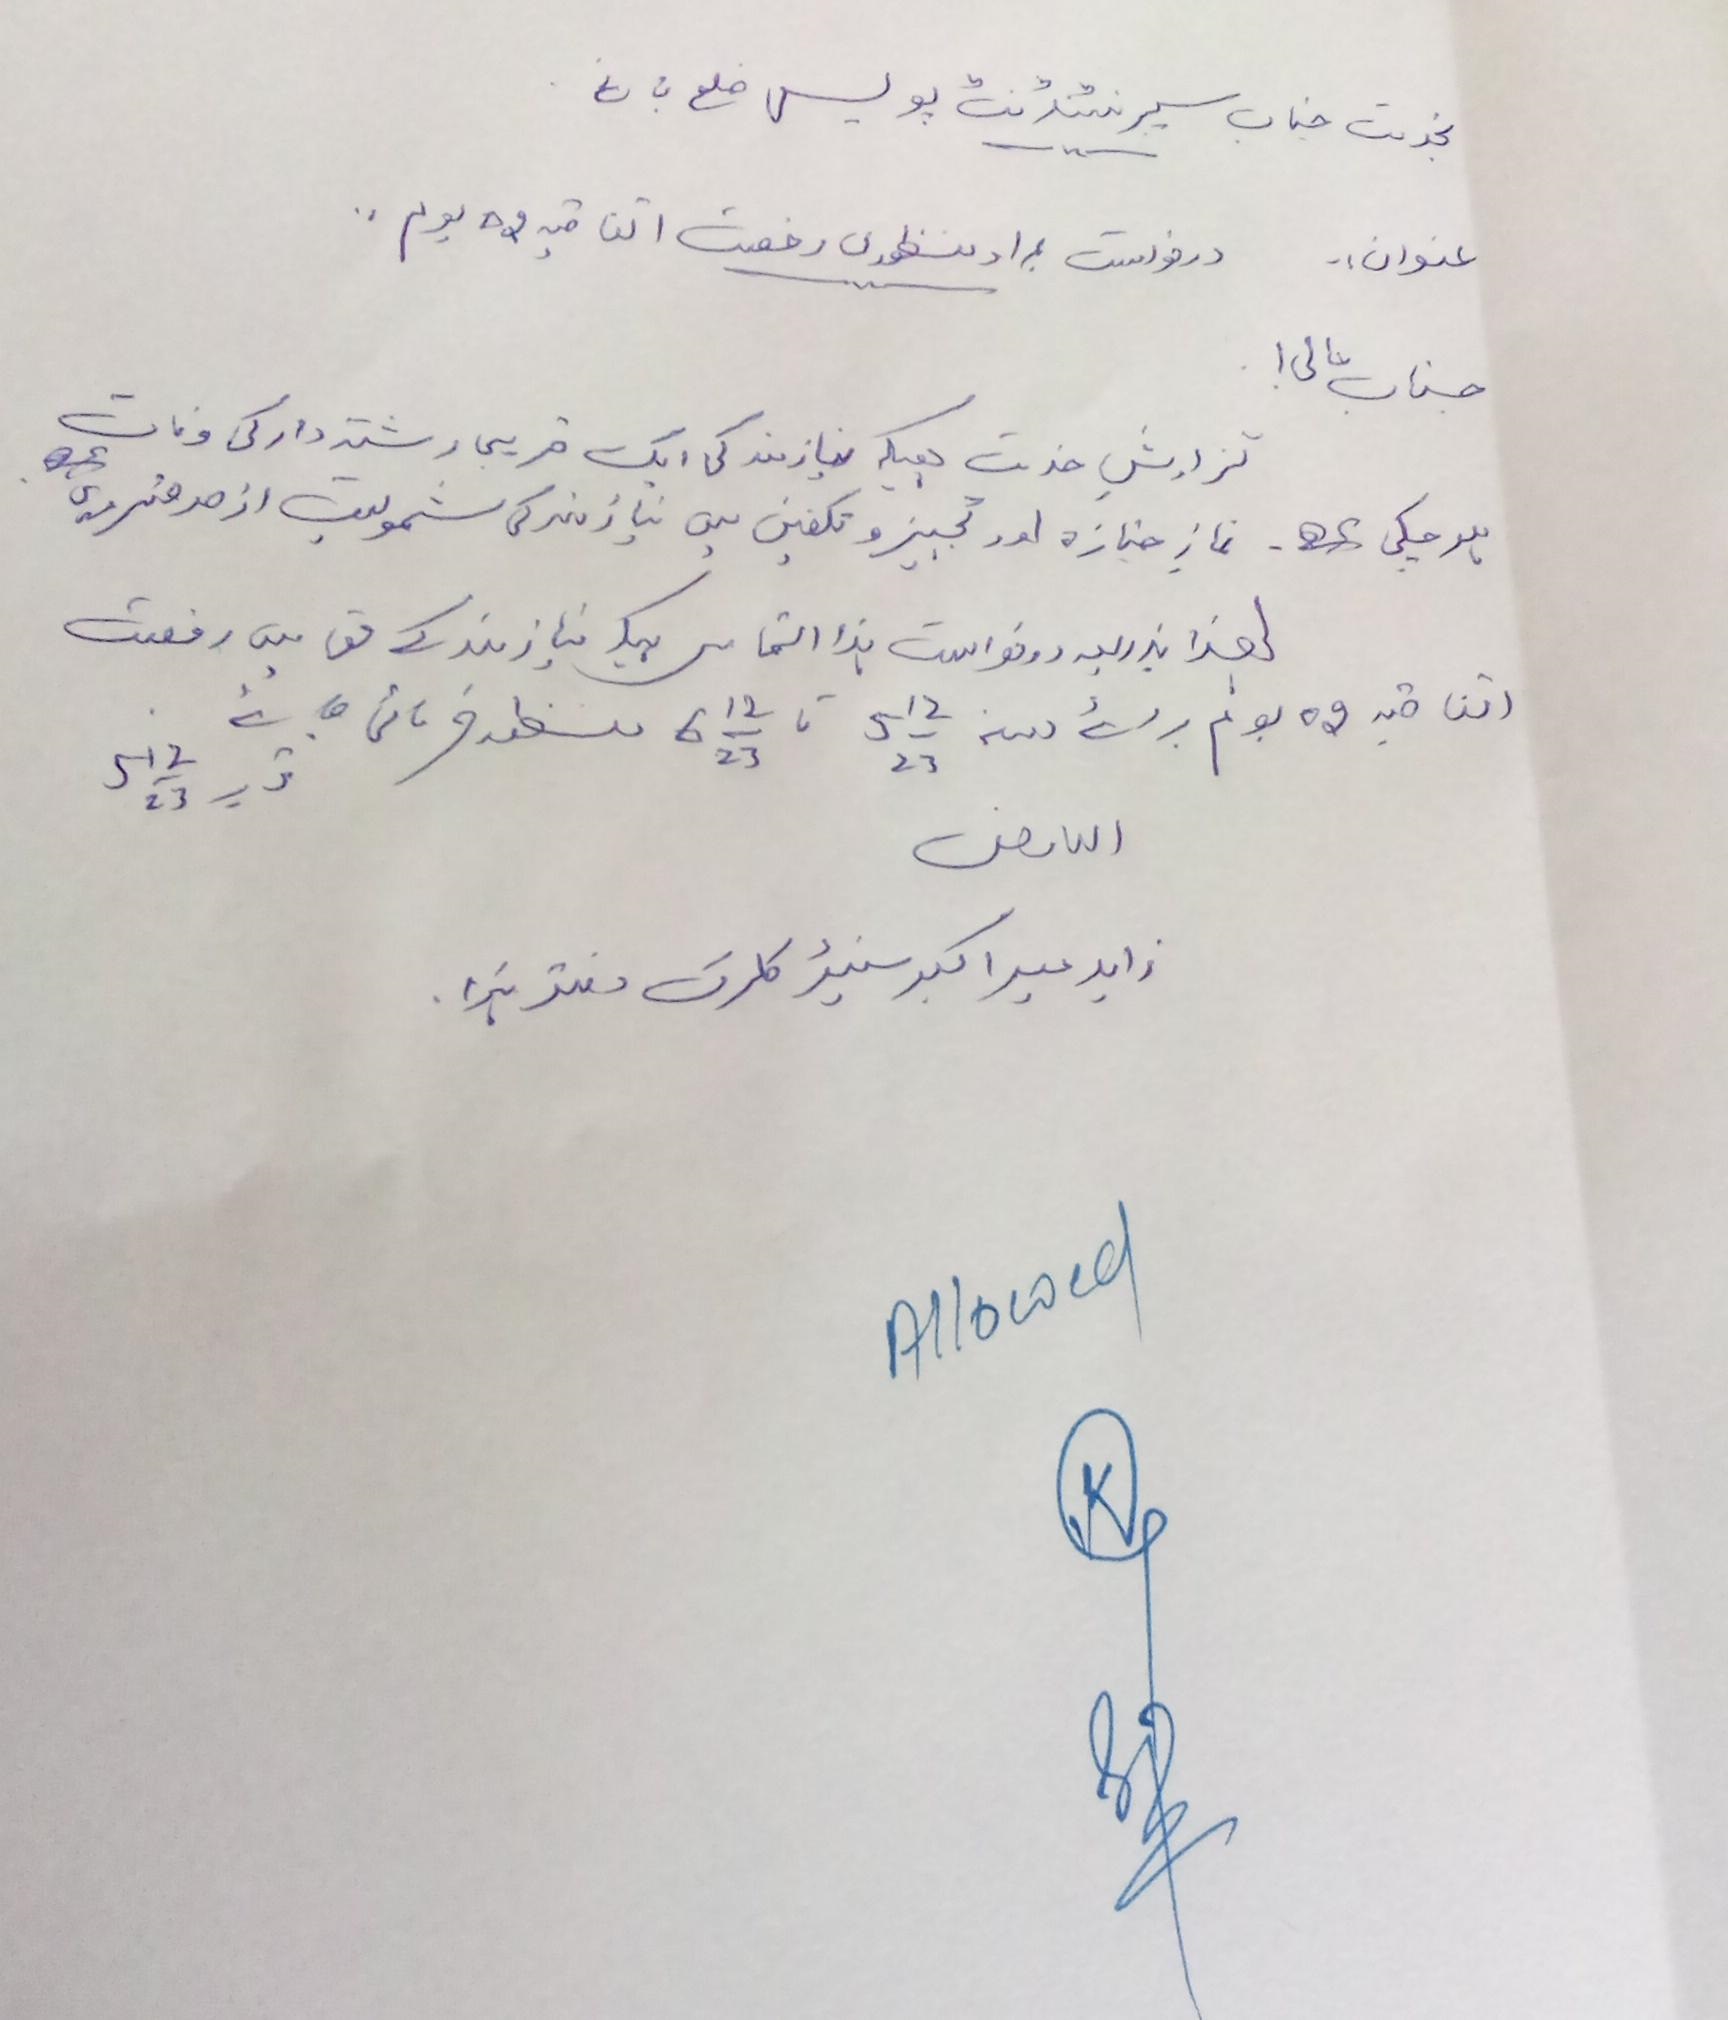 بخدمت جناب سپرنٹنڈنٹ پولیس ضلع باغ
عنوان:۔ درخواست بمراد منظوری رخصت اتفاقیہ 02 یوم
جناب عالی!
گزارش خدمت ہیکہ نیازمند کی ایک قریبی رشتہ دار کی وفات
ہو چکی ہے۔ نماز جنازہ اور تجہیز و تکفین میں نیازمند کی شمولیت از حد ضروری ہے
لہذا بذریعہ درخواست ہذا التماس ہیکہ نیازمند کے حق میں رخصت
اتفاقیہ 02 یوم برائے مورخہ 5 12/23 تا 6 12/23 منظور فرمائی جائے
5 12/23
العارض
زاہد اکبر سینئر کلرک دفتر ہذا
Allowed
K
SP